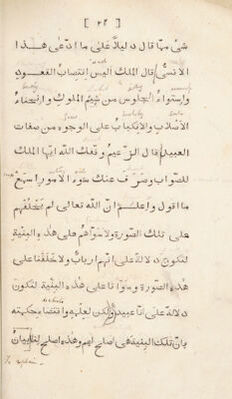 [ ٢٤ ]
شئ مما قال دليلاً على ما ادّعى هذا
الانسىّ قال الملك اليس انتصاب القعود
واستواء الجلوس من شيم الملوك وانحناء
الأصلاب والانكباب على الوجوه من صفات
العبيد قال الزّعيم وفّقك الله ايها الملك
للصّواب وصرف عنك سوء الامور اسمع
ما اقول واعلم انّ الله تعالى لم يخلقهم
على تلك الصّورة ولا سوّاهم على هذه البنية
لتكون دلالة على انهم ارباب ولا خلقنا على
هذه الصّورة وسوّانا على هذه البنية لتكون
دلالة على انّا عبيد ولكن لعلمه واقتضاء حكمته
بانّ تلك البنية هى اصلح لهم وهذه اصلح لنا بيان